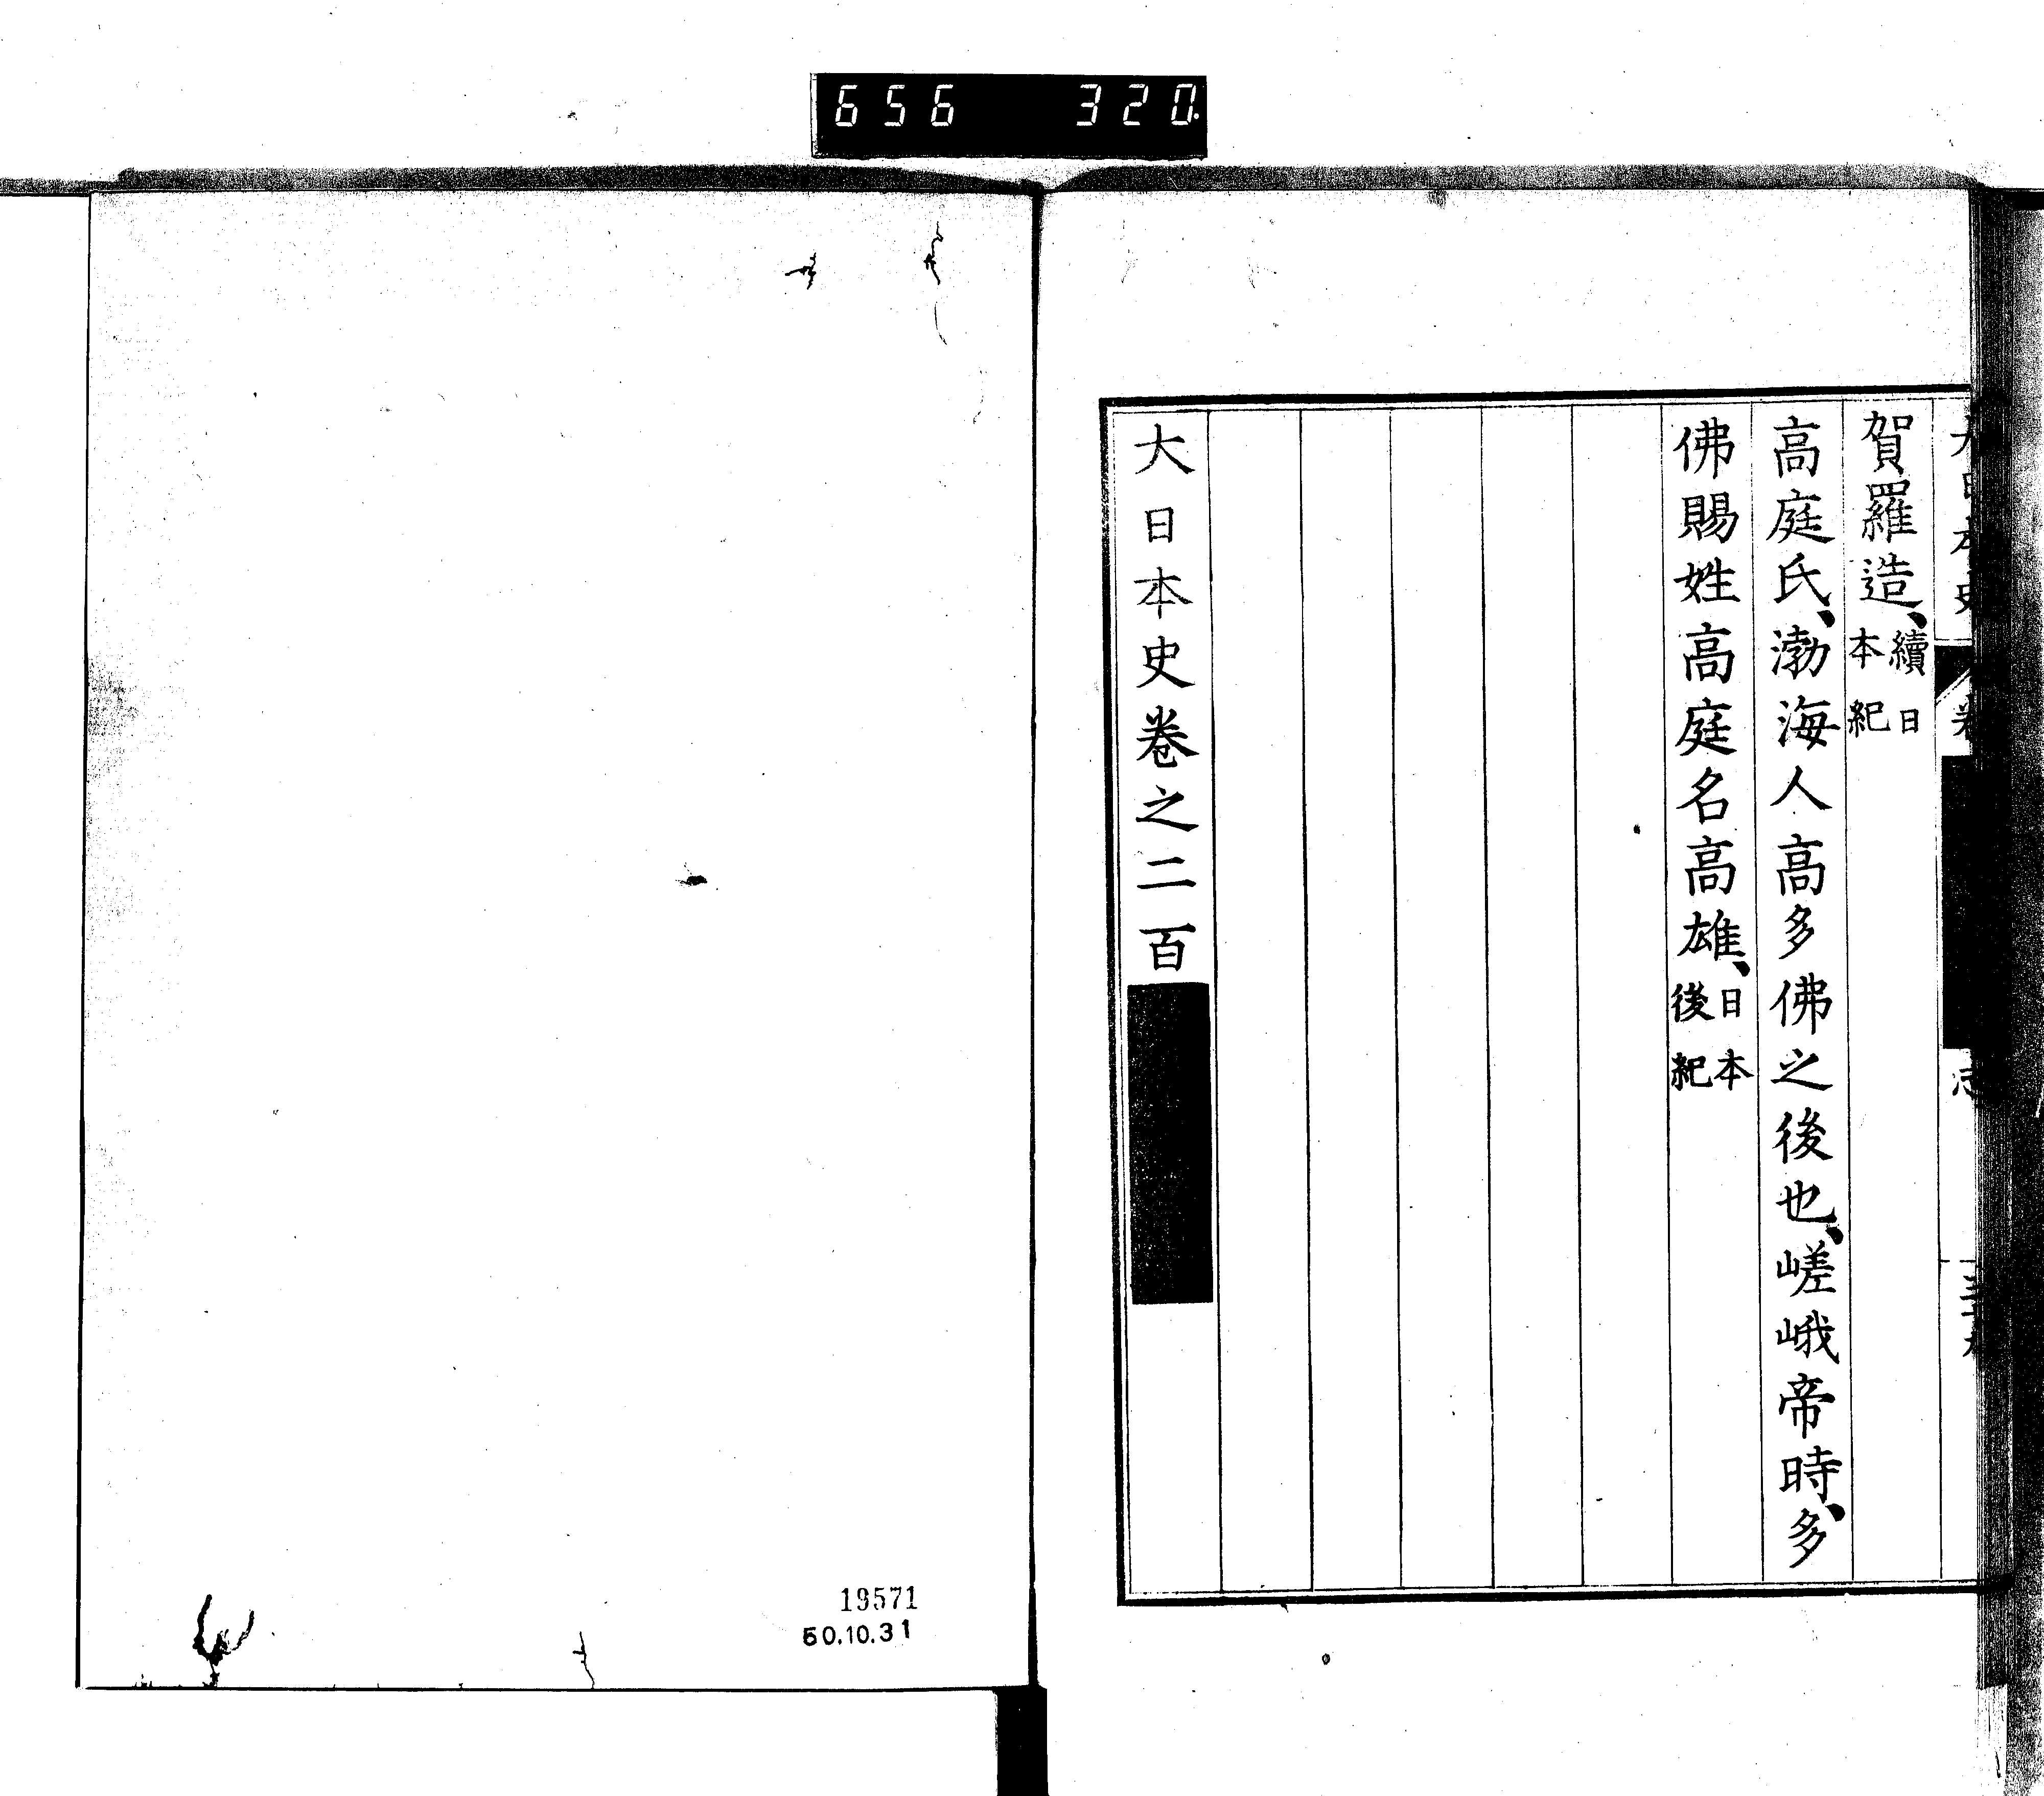 656 320.
賀羅造、續日本紀
高庭氏、渤海人高多佛之後也、嵯峨帝時、多
佛賜姓高庭名高雄、日本後紀
大日本史卷之二百
19571
50.10.31